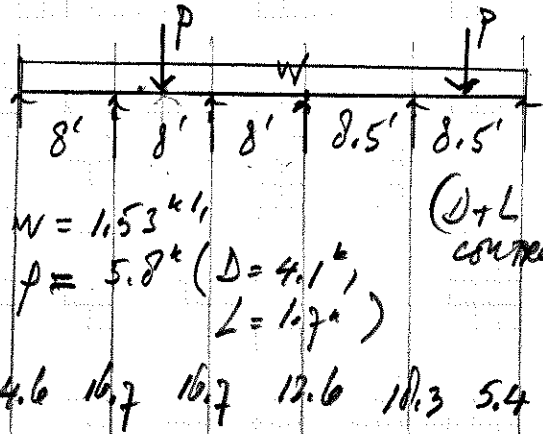 P P
W
8' 8' 8' 8.5' 8.5'
W = 1.53 k/,
P = 5.8k ( D = 4.1k,
L = 1.7k )
(D+L
4.6 16.7 16.7 12.6 18.3 5.4